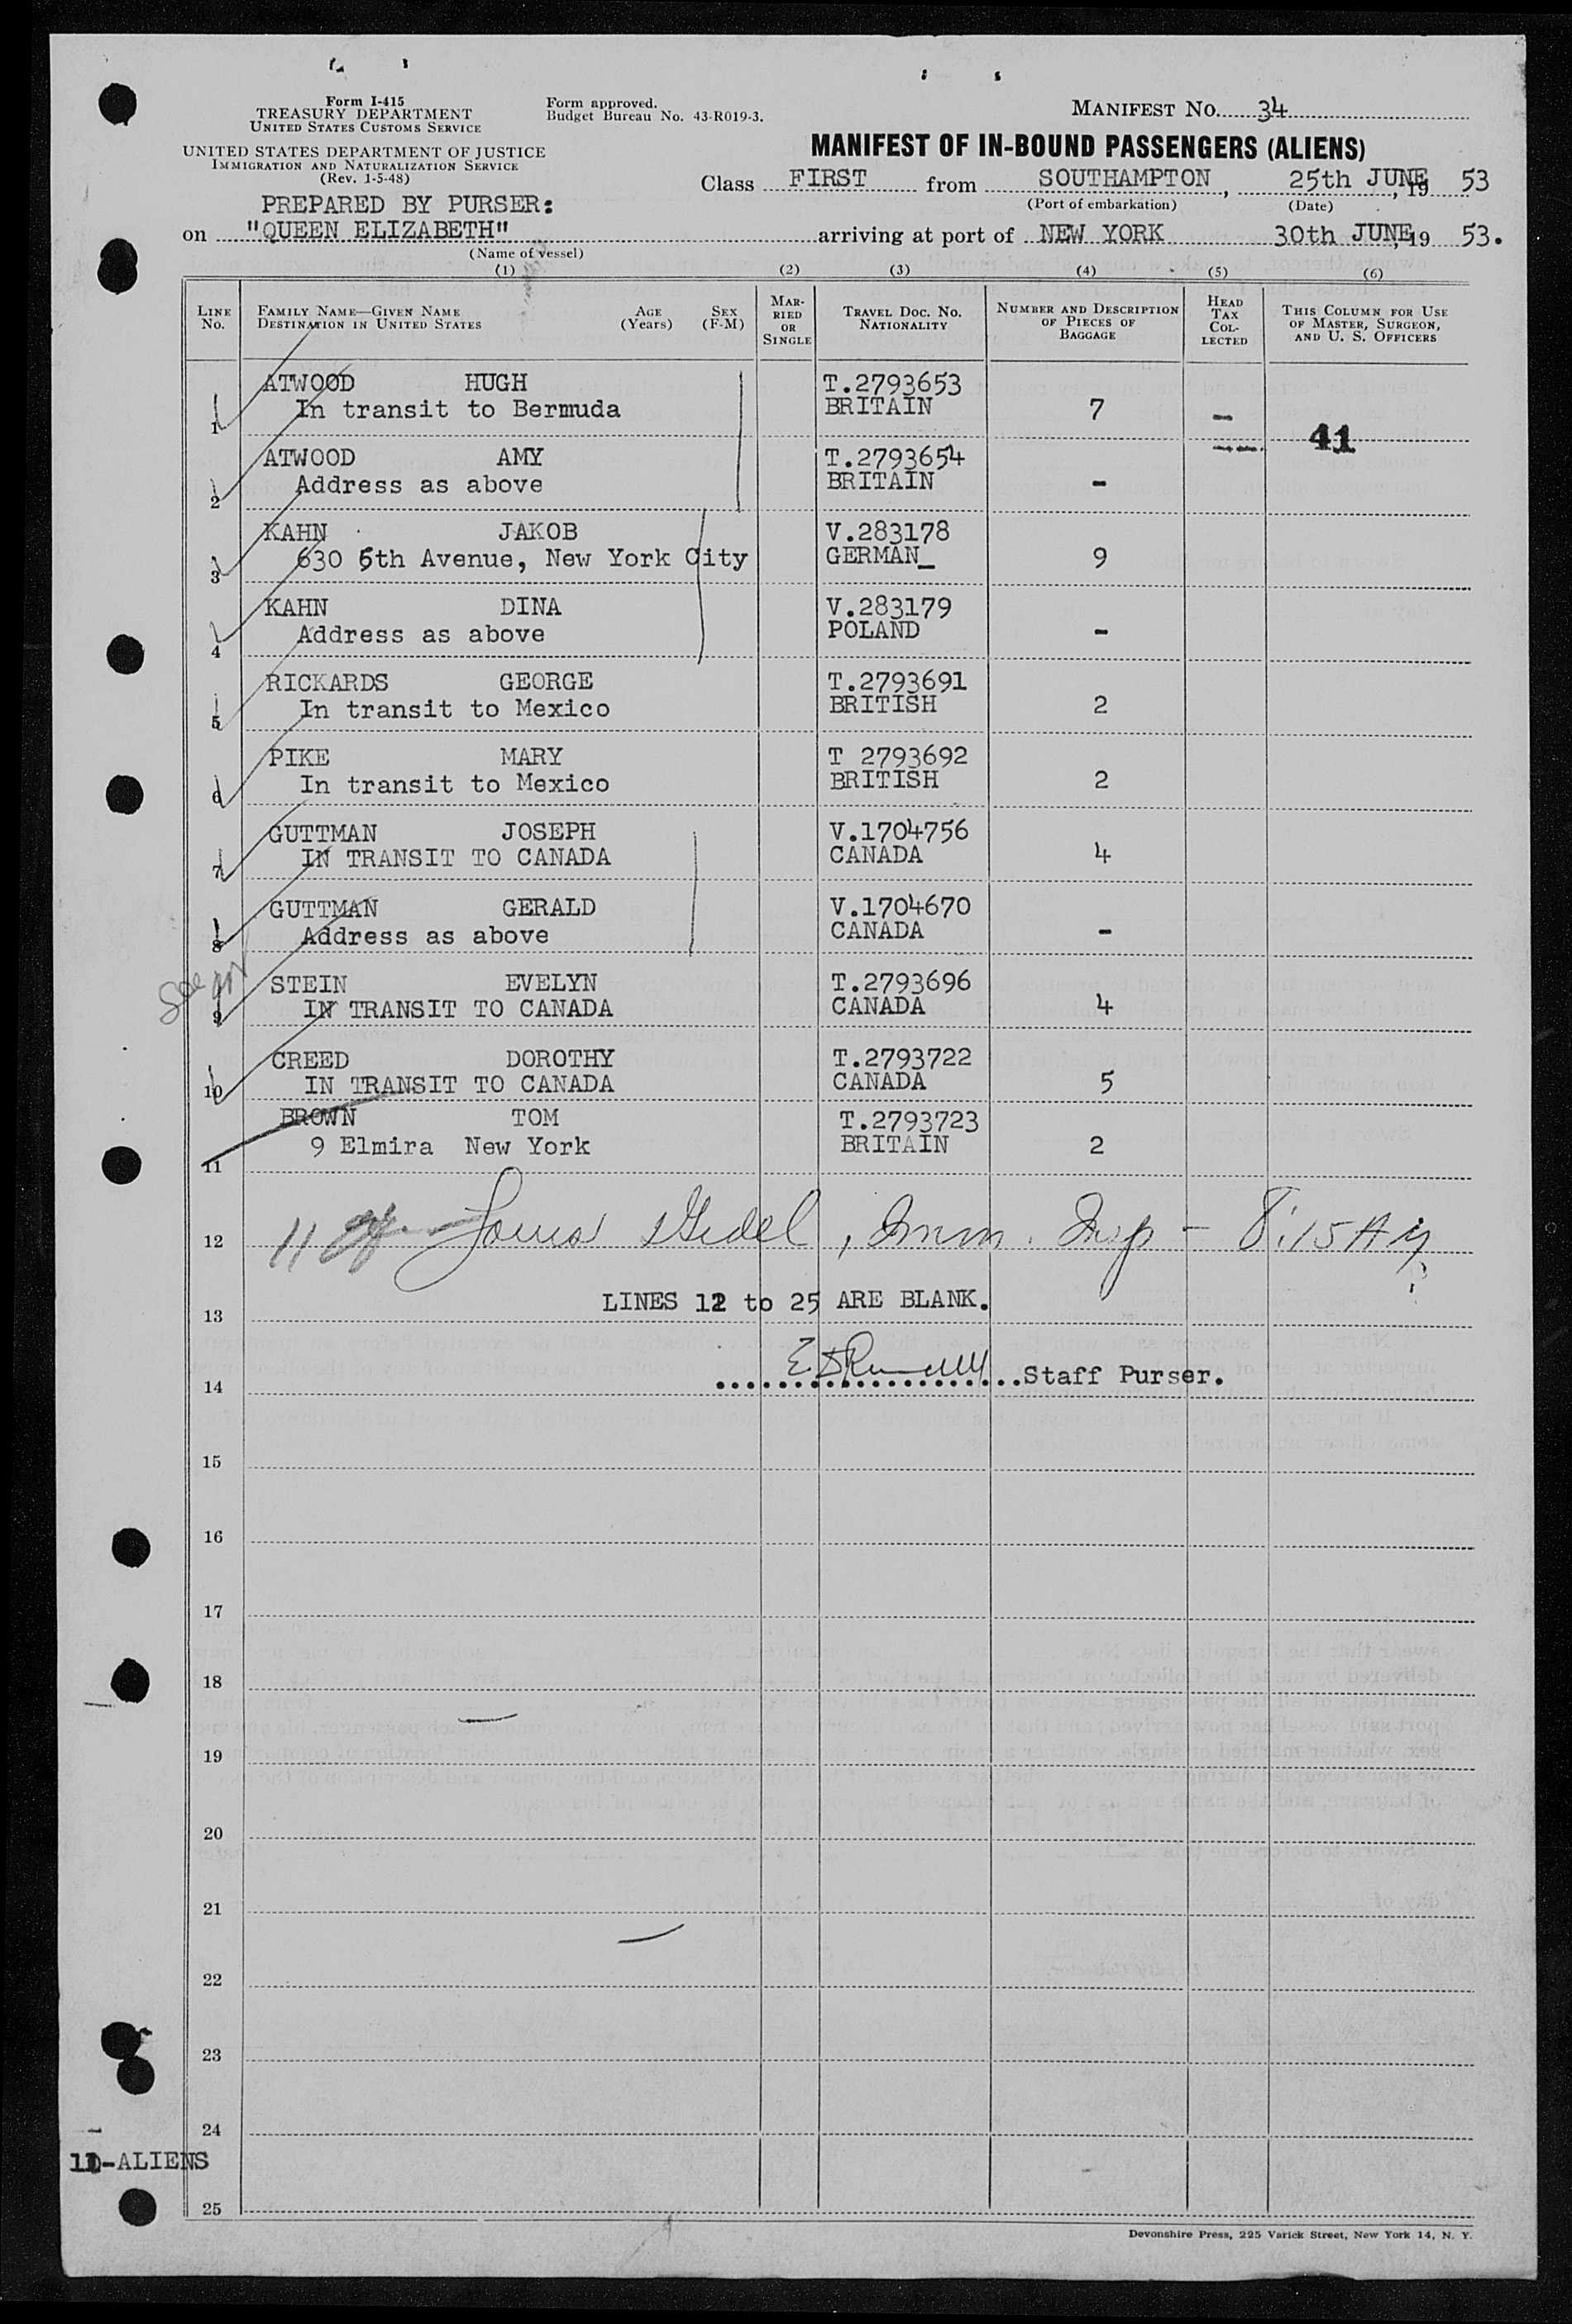 Form I-415
TREASURY DEPARTMENT
UNITED STATES CUSTOMS SERVICE
UNITED STATES DEPARTMENT OF JUSTICE
IMMIGRATION AND NATURALIZATION SERVICE
(Rev. 1-5-48)
Form approved.
Budget Bureau No. 43-R019-3.
MANIFEST NO. 34
MANIFEST OF IN-BOUND PASSENGERS (ALIENS)
Class FIRST from SOUTHAMPTON, 25th JUNE, 19 53
(Port of embarkation) (Date)
PREPARED BY PURSER:
on "QUEEN ELIZABETH" arriving at port of NEW YORK 30th JUNE, 19 53.
(Name of vessel)
(1) (2) (3) (4) (5) (6)
LINE NO.
FAMILY NAME—GIVEN NAME
DESTINATION IN UNITED STATES
AGE (Years)
SEX (F-M)
MARRIED OR SINGLE
TRAVEL DOC. NO. NATIONALITY
NUMBER AND DESCRIPTION OF PIECES OF BAGGAGE
HEAD TAX COLLECTED
THIS COLUMN FOR USE OF MASTER, SURGEON, AND U. S. OFFICERS
ATWOOD HUGH T.2793653
1 In transit to Bermuda BRITAIN 7 —
41
ATWOOD AMY T.2793654
2 Address as above BRITAIN -
KAHN JAKOB V.283178
3 630 5th Avenue, New York City GERMAN_ 9
KAHN DINA V.283179
4 Address as above POLAND -
RICKARDS GEORGE T.2793691
5 In transit to Mexico BRITISH 2
PIKE MARY T 2793692
6 In transit to Mexico BRITISH 2
GUTTMAN JOSEPH V.1704756
7 IN TRANSIT TO CANADA CANADA 4
GUTTMAN GERALD V.1704670
8 Address as above CANADA -
STEIN EVELYN T.2793696
9 IN TRANSIT TO CANADA CANADA 4
CREED DOROTHY T.2793722
10 IN TRANSIT TO CANADA CANADA 5
BROWN TOM T.2793723
9 Elmira New York BRITAIN 2
11
12 11 , Imm. Insp - 8:15 AM
13 LINES 12 to 25 ARE BLANK.
14 Staff Purser.
15
16
17
18
19
20
21
22
23
24
11-ALIENS
25
Devonshire Press, 225 Varick Street, New York 14, N. Y.